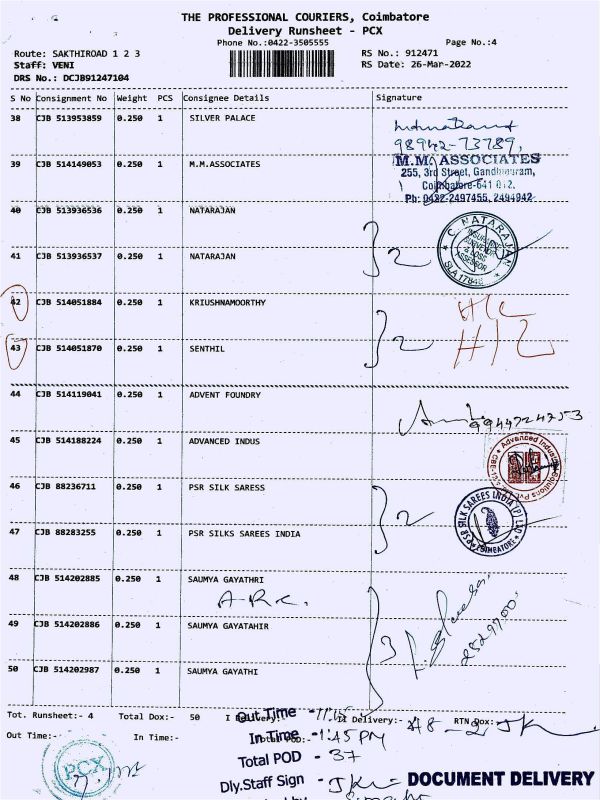 THE PROFESSIONAL COURIERS, Coimbatore
Delivery Runsheet - PCX
Phone No.:0422-3505555
Page No.:4
Route: SAKTHIROAD 1 2 3
RS No.: 912471
Staff: VENI
RS Date: 26-Mar-2022
DRS No.: DCJB91247104
S No Consignment No Weight PCS Consignee Details Signature
38 CJB 513953859 0.250 1 SILVER PALACE
98942-73789,
39 CJB 514149053 0.250 1 M.M.ASSOCIATES
M.M. ASSOCIATES
255, 3rd Street, Gandhipuram,
Coimbatore-641 012.
Ph: 0422-2497455, 2494942
40 CJB 513936536 0.250 1 NATARAJAN
41 CJB 513936537 0.250 1 NATARAJAN
2
C. NATARAJAN
INSURANCE
SURVEYOR
& LOSS
ASSESSOR
SLA 17848
42 CJB 514051884 0.250 1 KRIUSHNAMOORTHY
43 CJB 514051870 0.250 1 SENTHIL
2
44 CJB 514119041 0.250 1 ADVENT FOUNDRY
9944724753
45 CJB 514188224 0.250 1 ADVANCED INDUS
46 CJB 88236711 0.250 1 PSR SILK SARESS
47 CJB 88283255 0.250 1 PSR SILKS SAREES INDIA
2
PSR SILK SAREES INDIA (P) LTD
COIMBATORE
48 CJB 514202885 0.250 1 SAUMYA GAYATHRI
49 CJB 514202886 0.250 1 SAUMYA GAYATAHIR
3
50 CJB 514202987 0.250 1 SAUMYA GAYATHI
Tot. Runsheet:- 4 Total Dox:- 50 I Delivery:- II Delivery:- 48 RTN Dox:- 2
Out Time:- In Time:-
Out Time -
In Time - 1:45 PM
Total POD - 37
Dly.Staff Sign -
PCX
DOCUMENT DELIVERY